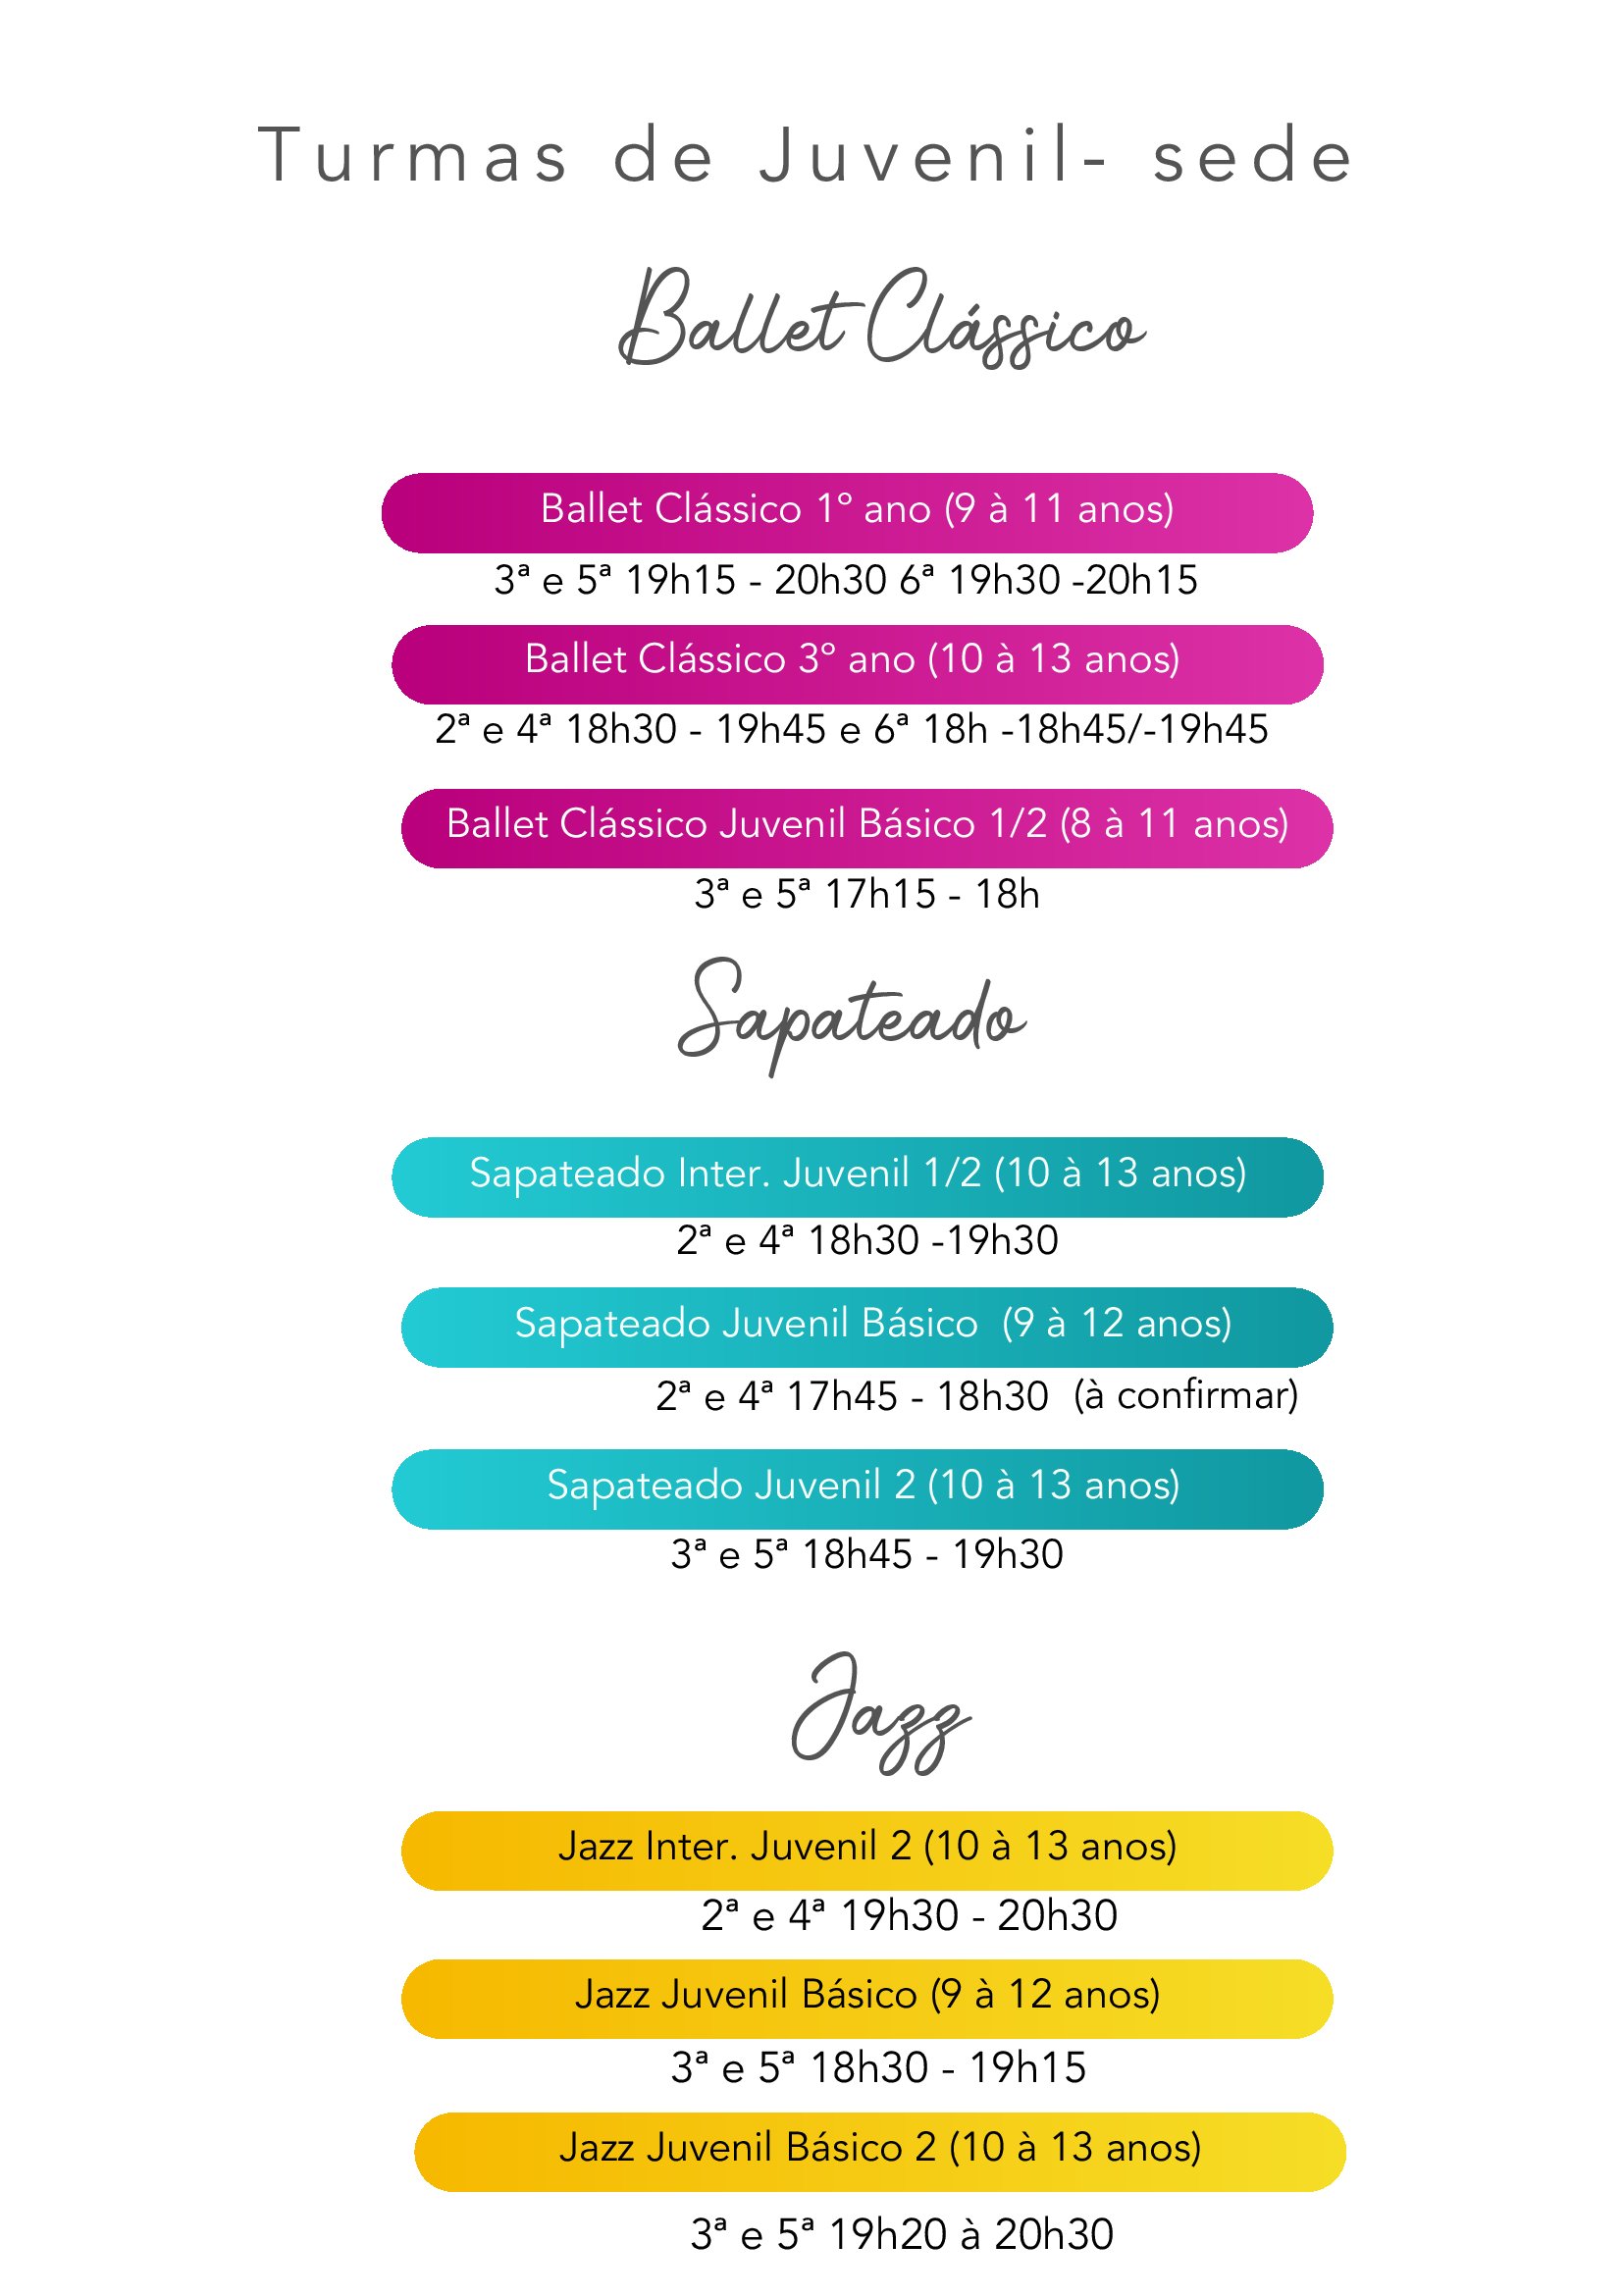 Turmas de Juvenil- sede
Ballet Clássico
Ballet Clássico 1º ano (9 à 11 anos)
3ª e 5ª 19h15 - 20h30 6ª 19h30 -20h15
Ballet Clássico 3º ano (10 à 13 anos)
2ª e 4ª 18h30 - 19h45 e 6ª 18h -18h45/-19h45
Ballet Clássico Juvenil Básico 1/2 (8 à 11 anos)
3ª e 5ª 17h15 - 18h
Sapateado
Sapateado Inter. Juvenil 1/2 (10 à 13 anos)
2ª e 4ª 18h30 -19h30
Sapateado Juvenil Básico (9 à 12 anos)
2ª e 4ª 17h45 - 18h30 (à confirmar)
Sapateado Juvenil 2 (10 à 13 anos)
3ª e 5ª 18h45 - 19h30
Jazz
Jazz Inter. Juvenil 2 (10 à 13 anos)
2ª e 4ª 19h30 - 20h30
Jazz Juvenil Básico (9 à 12 anos)
3ª e 5ª 18h30 - 19h15
Jazz Juvenil Básico 2 (10 à 13 anos)
3ª e 5ª 19h20 à 20h30